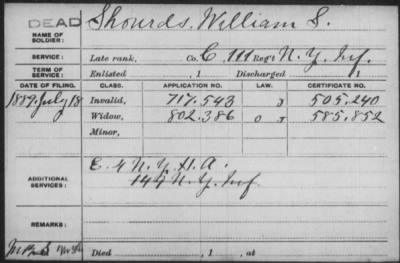 DEAD
NAME OF SOLDIER: Shourds, William S.
SERVICE: Late rank, Co. C, 111 Reg't N.Y. Inf.
TERM OF SERVICE: Enlisted , 1 Discharged 1
DATE OF FILING. CLASS. APPLICATION NO. LAW. CERTIFICATE NO.
1889. July 18 Invalid, 717.543 J 505.240
Widow, 802.386 O J 585.852
Minor,
ADDITIONAL SERVICES: E. 4 N.Y. H.A.
147 N.Y. Inf
REMARKS:
Died , 1 , at